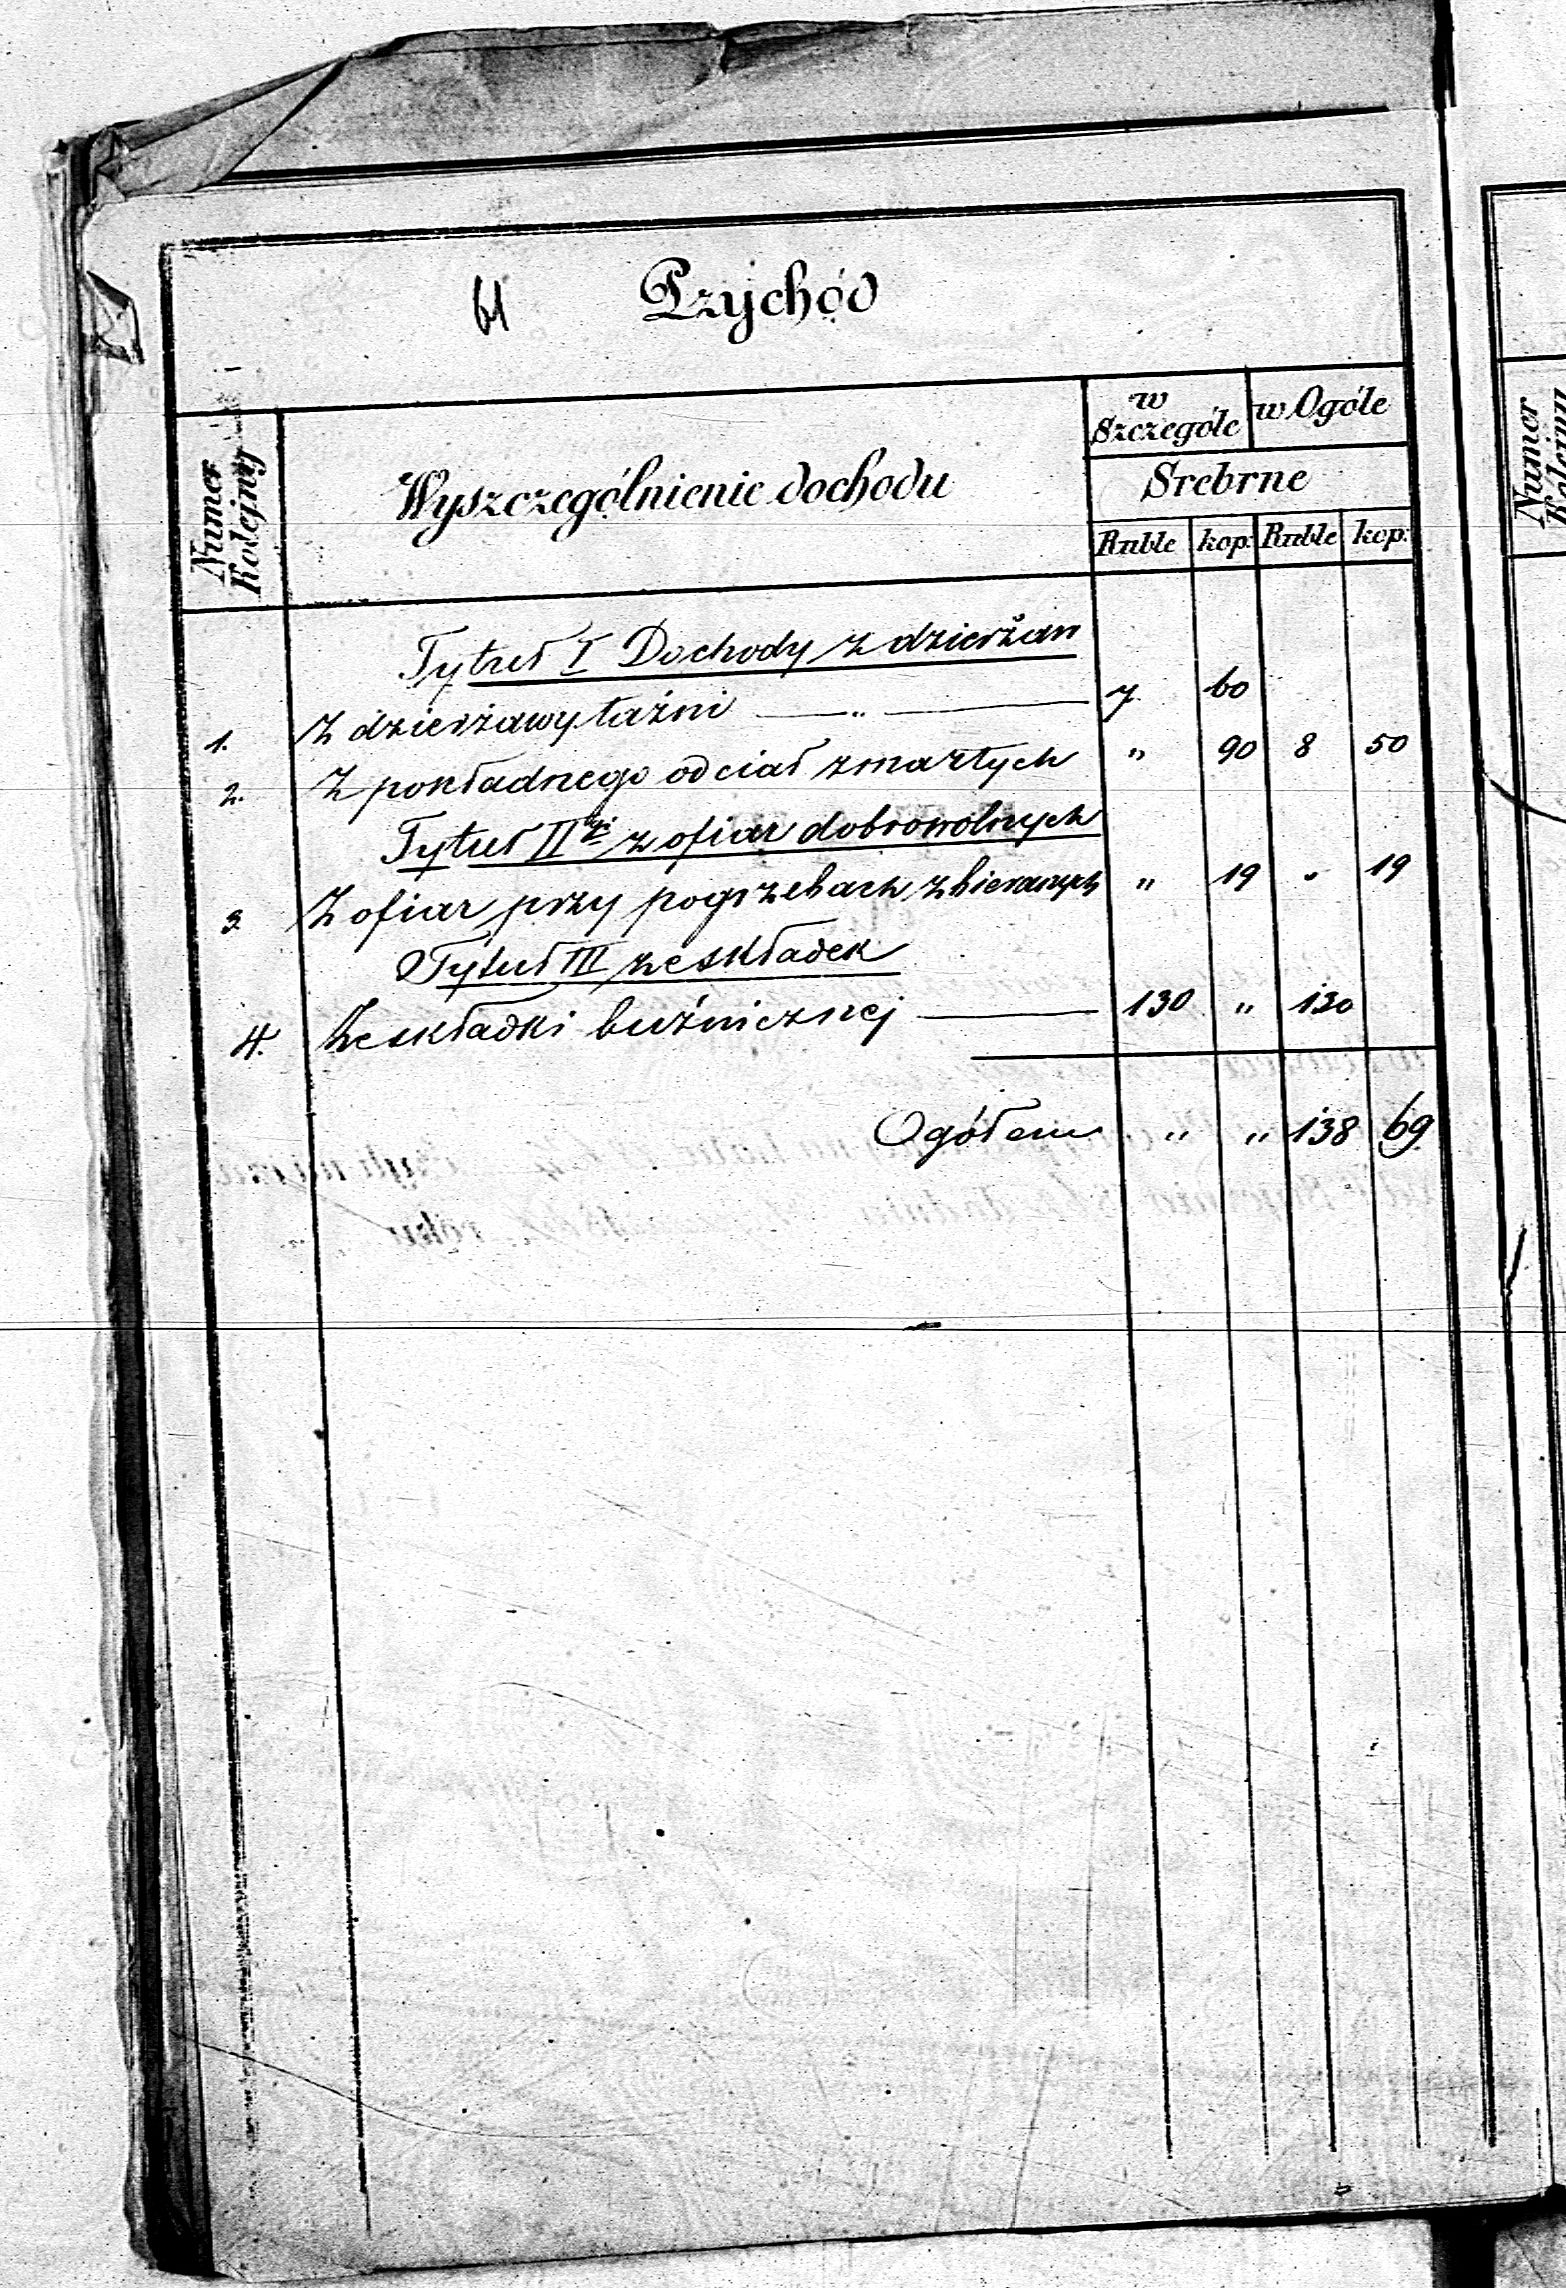 61 Przychód
Numer Kolejny
Wyszczególnienie dochodu
w Szczególe
w Ogóle
Srebrne
Ruble kop: Ruble kop:
Tytuł I Dochody z dzierżaw
1. Z dzierżawy łaźni — „ — 7 60
2. Z pokładnego od ciał zmarłych „ 90 8 50
Tytuł II gi z ofiar dobrowolnych
3. Z ofiar przy pogrzebach zbieranych „ 19 „ 19
Tytuł III ze składek
4. Ze składki buźnicznej — 130 „ 130
Ogółem „ „ 138 69
Numer Kolejny